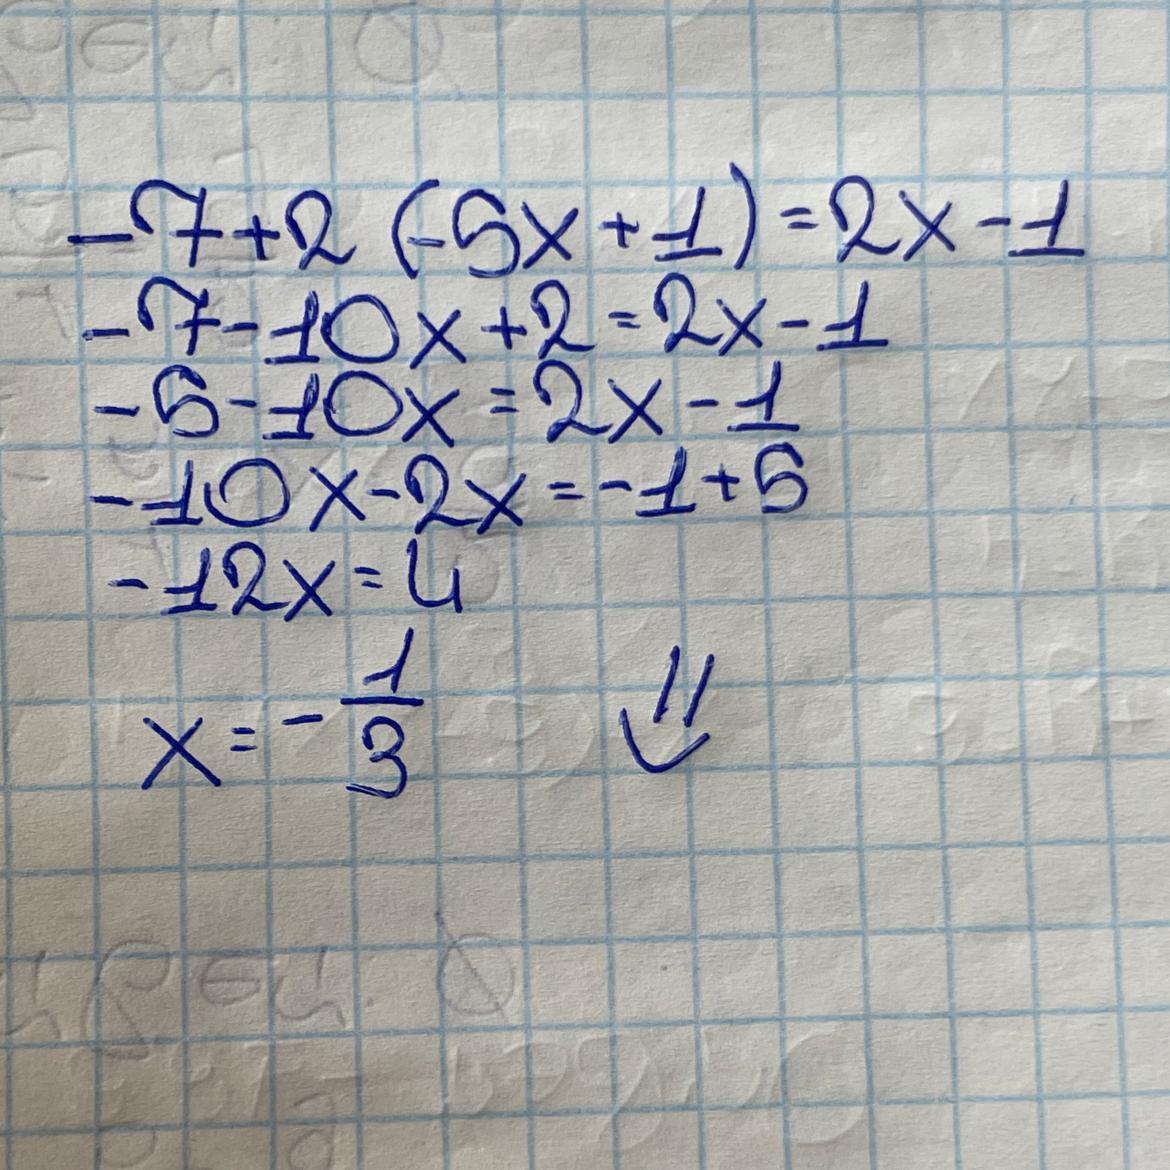 -7+2(-5x+1)=2x-1
-7-10x+2=2x-1
-5-10x=2x-1
-10x-2x=-1+5
-12x=4
x=-1/3 ⇓